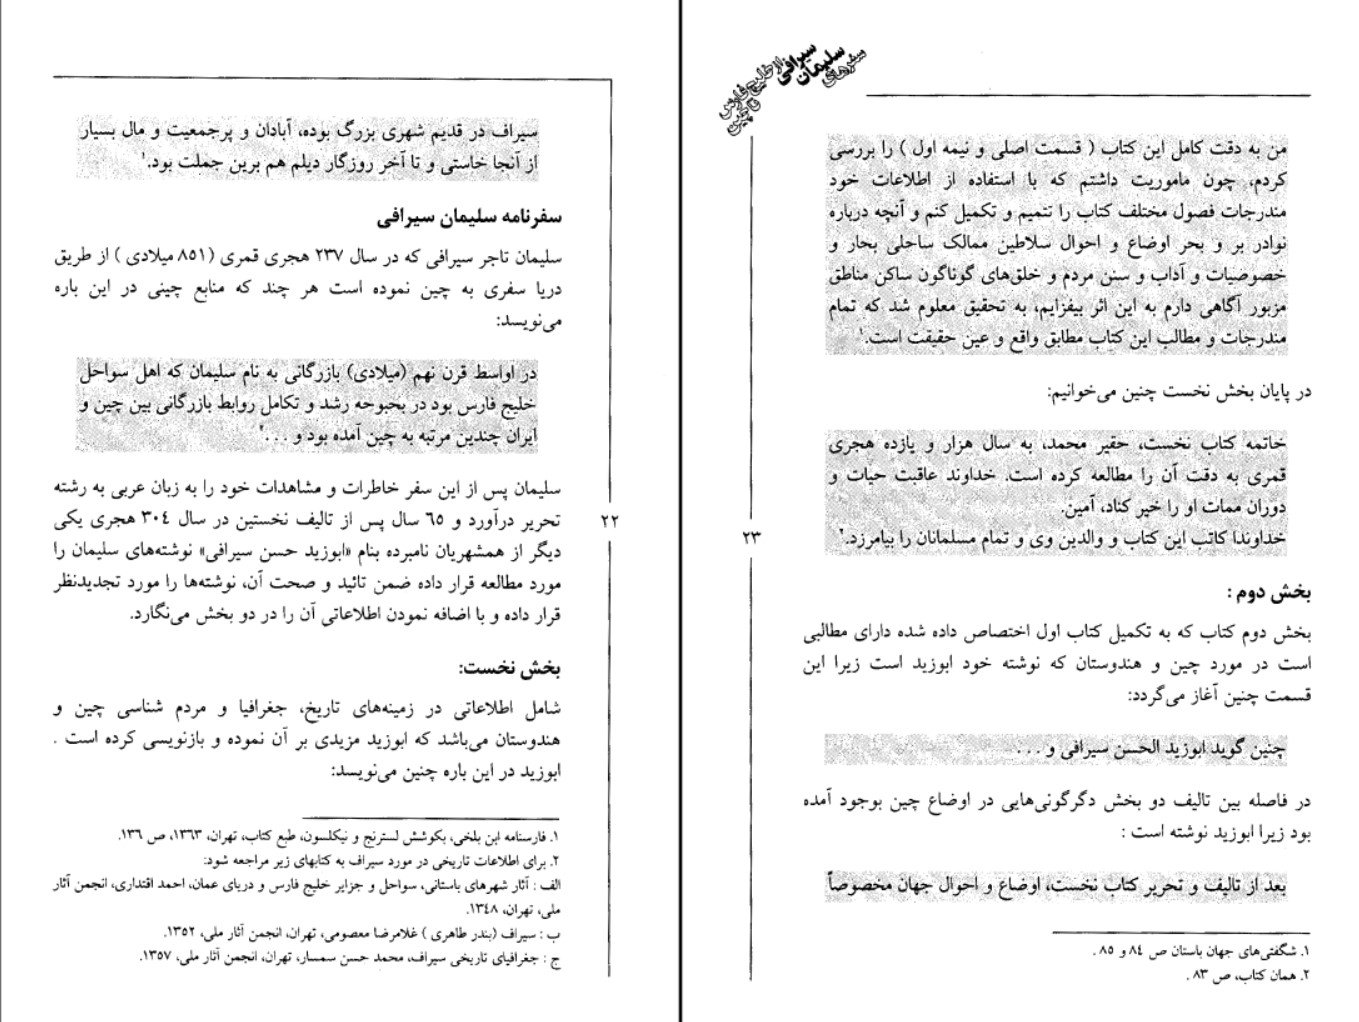 سیراف در قدیم شهری بزرگ بوده، آبادان و پرجمعیت و مال بسیار
از آنجا خاستی و تا آخر روزگار دیلم هم برین جملت بود.۱
سفرنامه سلیمان سیرافی
سلیمان تاجر سیرافی که در سال ۲۳۷ هجری قمری (۸۵۱ میلادی ) از طریق
دریا سفری به چین نموده است هر چند که منابع چینی در این باره
می‌نویسد:
در اواسط قرن نهم (میلادی) بازرگانی به نام سلیمان که اهل سواحل
خلیج فارس بود در بحبوحه رشد و تکامل روابط بازرگانی بین چین و
ایران چندین مرتبه به چین آمده بود و . . .۲
سلیمان پس از این سفر خاطرات و مشاهدات خود را به زبان عربی به رشته
تحریر درآورد و ۶۵ سال پس از تالیف نخستین در سال ۳۰۴ هجری یکی
دیگر از همشهریان نامبرده بنام «ابوزید حسن سیرافی» نوشته‌های سلیمان را
مورد مطالعه قرار داده ضمن تائید و صحت آن، نوشته‌ها را مورد تجدیدنظر
قرار داده و با اضافه نمودن اطلاعاتی آن را در دو بخش می‌نگارد.
۲۲
بخش نخست:
شامل اطلاعاتی در زمینه‌های تاریخ، جغرافیا و مردم شناسی چین و
هندوستان می‌باشد که ابوزید مزیدی بر آن نموده و بازنویسی کرده است .
ابوزید در این باره چنین می‌نویسد:
۱. فارسنامه ابن بلخی، بکوشش لسترنج و نیکلسون، طبع کتاب، تهران، ۱۳۶۳، ص ۱۳۶.
۲. برای اطلاعات تاریخی در مورد سیراف به کتابهای زیر مراجعه شود:
الف : آثار شهرهای باستانی، سواحل و جزایر خلیج فارس و دریای عمان، احمد اقتداری، انجمن آثار
ملی، تهران، ۱۳۴۸.
ب : سیراف (بندر طاهری ) غلامرضا معصومی، تهران، انجمن آثار ملی، ۱۳۵۲.
ج : جغرافیای تاریخی سیراف، محمد حسن سمسار، تهران، انجمن آثار ملی، ۱۳۵۷.
سفرهای
سلیمان
سیرافی
از خلیج فارس
تا چین
من به دقت کامل این کتاب ( قسمت اصلی و نیمه اول ) را بررسی
کردم، چون ماموریت داشتم که با استفاده از اطلاعات خود
مندرجات فصول مختلف کتاب را تتمیم و تکمیل کنم و آنچه درباره
نوادر بر و بحر اوضاع و احوال سلاطین ممالک ساحلی بحار و
خصوصیات و آداب و سنن مردم و خلق‌های گوناگون ساکن مناطق
مزبور آگاهی دارم به این اثر بیفزایم، به تحقیق معلوم شد که تمام
مندرجات و مطالب این کتاب مطابق واقع و عین حقیقت است.۱
در پایان بخش نخست چنین می‌خوانیم:
خاتمه کتاب نخست، حقیر محمد، به سال هزار و یازده هجری
قمری به دقت آن را مطالعه کرده است. خداوند عاقبت حیات و
دوران ممات او را خیر کناد، آمین.
خداوندا کاتب این کتاب و والدین وی و تمام مسلمانان را بیامرزد.۲
۲۳
بخش دوم :
بخش دوم کتاب که به تکمیل کتاب اول اختصاص داده شده دارای مطالبی
است در مورد چین و هندوستان که نوشته خود ابوزید است زیرا این
قسمت چنین آغاز می‌گردد:
چنین گوید ابوزید الحسن سیرافی و . . .
در فاصله بین تالیف دو بخش دگرگونی‌هایی در اوضاع چین بوجود آمده
بود زیرا ابوزید نوشته است :
بعد از تالیف و تحریر کتاب نخست، اوضاع و احوال جهان مخصوصاً
۱. شگفتی‌های جهان باستان ص ۸۴ و ۸۵ .
۲. همان کتاب، ص ۸۳ .